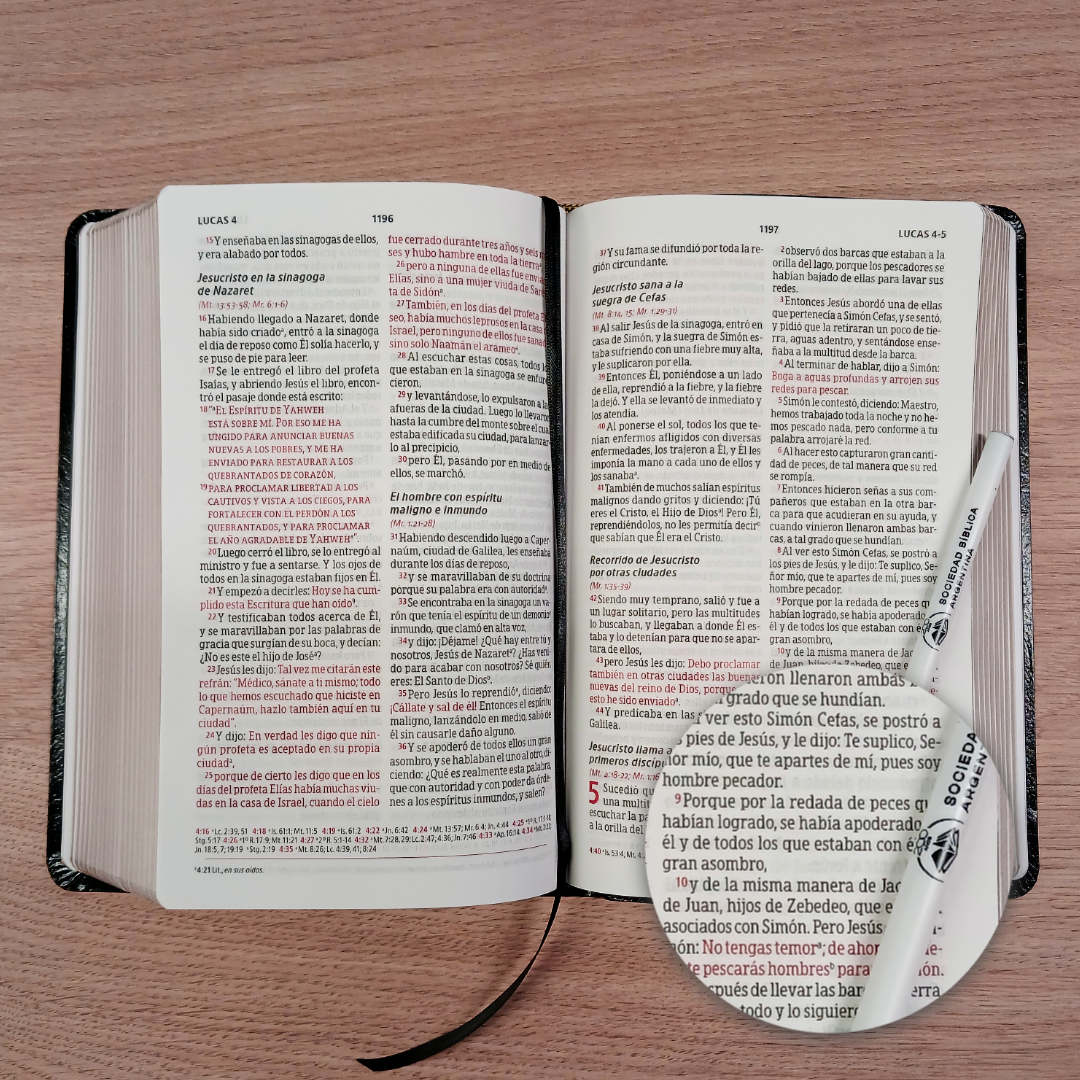 LUCAS 4
1196
15Y enseñaba en las sinagogas de ellos,
y era alabado por todos.
Jesucristo en la sinagoga
de Nazaret
(Mt. 13:53-58; Mr. 6:1-6)
16Habiendo llegado a Nazaret, donde
había sido criadoa, entró a la sinagoga
el día de reposo como Él solía hacerlo, y
se puso de pie para leer.
17Se le entregó el libro del profeta
Isaías, y abriendo Jesús el libro, encon-
tró el pasaje donde está escrito:
18"aEL ESPÍRITU DE YAHWEH
ESTÁ SOBRE MÍ. POR ESO ME HA
UNGIDO PARA ANUNCIAR BUENAS
NUEVAS A LOS POBRES, Y ME HA
ENVIADO PARA RESTAURAR A LOS
QUEBRANTADOS DE CORAZÓN,
19PARA PROCLAMAR LIBERTAD A LOS
CAUTIVOS Y VISTA A LOS CIEGOS, PARA
FORTALECER CON EL PERDÓN A LOS
QUEBRANTADOS, Y PARA PROCLAMAR
EL AÑO AGRADABLE DE YAHWEHa".
20Luego cerró el libro, se lo entregó al
ministro y fue a sentarse. Y los ojos de
todos en la sinagoga estaban fijos en Él.
21Y empezó a decirles: Hoy se ha cum-
plido esta Escritura que han oído
22Y testificaban todos acerca de Él,
y se maravillaban por las palabras de
gracia que surgían de su boca, y decían:
¿No es este el hijo de Joséa?
23Jesús les dijo: Tal vez me citarán este
refrán: "Médico, sánate a ti mismo; todo
lo que hemos escuchado que hiciste en
Capernaúm, hazlo también aquí en tu
ciudad".
24Y dijo: En verdad les digo que nin-
gún profeta es aceptado en su propia
ciudada,
25porque de cierto les digo que en los
días del profeta Elías había muchas viu-
das en la casa de Israel, cuando el cielo
fue cerrado durante tres años y seis
ses y hubo hambre en toda la tierra
26pero a ninguna de ellas fue
Elías, sino a una mujer viuda de
ta de Sidóna.
27También, en los días del profeta
seo, había muchos leprosos en la casa
Israel, pero ninguno de ellos fue
sino solo Naamán el arameoa.
28Al escuchar estas cosas, todos
que estaban en la sinagoga se
cieron,
29y levantándose, lo expulsaron a
afueras de la ciudad. Luego lo
hasta la cumbre del monte sobre el
estaba edificada su ciudad, para
lo al precipicio,
30pero Él, pasando por en medio
ellos, se marchó.
El hombre con espíritu
maligno e inmundo
(Mr. 1:21-28)
31Habiendo descendido luego a Caper-
naúm, ciudad de Galilea, les enseñaba
durante los días de reposo,
32y se maravillaban de su doctrina
porque su palabra era con autoridada.
33Se encontraba en la sinagoga un va-
rón que tenía el espíritu de un demonio
inmundo, que clamó en alta voz,
34y dijo: ¡Déjame! ¿Qué hay entre tú y
nosotros, Jesús de Nazareta? ¿Has veni-
do para acabar con nosotros? Sé quién
eres: El Santo de Diosb.
35Pero Jesús lo reprendióa, diciendo:
¡Cállate y sal de él! Entonces el espíritu
maligno, lanzándolo en medio, salió de
él sin causarle daño alguno.
36Y se apoderó de todos ellos un gran
asombro, y se hablaban el uno al otro, di-
ciendo: ¿Qué es realmente esta palabra,
que con autoridad y con poder da órde-
nes a los espíritus inmundos, y salen?
4:16 aLc. 2:39, 51 4:18 aIs. 61:1; Mt. 11:5 4:19 aIs. 61:2 4:22 aJn. 6:42 4:24 aMt. 13:57; Mr. 6:4; Jn. 4:44
a4:21 Lit., en sus oídos.
1197
LUCAS 4-5
37Y su fama se difundió por toda la re-
gión circundante.
Jesucristo sana a la
suegra de Cefas
(Mt. 8:14, 15; Mr. 1:29-31)
38Al salir Jesús de la sinagoga, entró en
casa de Simón, y la suegra de Simón es-
taba sufriendo con una fiebre muy alta,
y le suplicaron por ella.
39Entonces Él, poniéndose a un lado
de ella, reprendió a la fiebre, y la fiebre
la dejó. Y ella se levantó de inmediato y
los atendía.
40Al ponerse el sol, todos los que te-
nían enfermos afligidos con diversas
enfermedades, los trajeron a Él, y Él les
imponía la mano a cada uno de ellos y
los sanabaa.
41También de muchos salían espíritus
malignos dando gritos y diciendo: ¡Tú
eres el Cristo, el Hijo de Diosa! Pero Él,
reprendiéndolos, no les permitía decirb
que sabían que Él era el Cristo.
Recorrido de Jesucristo
por otras ciudades
(Mr. 1:35-39)
42Siendo muy temprano, salió y fue a
un lugar solitario, pero las multitudes
lo buscaban, y llegaban a donde Él es-
taba y lo detenían para que no se apar-
tara de ellos,
43pero Jesús les dijo: Debo proclamar
también en otras ciudades las
nuevas del reino de Dios, porque
esto he sido enviadoa.
44Y predicaba en las
Galilea.
Jesucristo llama a
primeros
(Mt. 4:18-22; Mr.
5 Sucedió
una
escuchar la
a la orilla del
4:40 aIs. 53:4; Mt.
2observó dos barcas que estaban a la
orilla del lago, porque los pescadores se
habían bajado de ellas para lavar sus
redes.
3Entonces Jesús abordó una de ellas
que pertenecía a Simón Cefas, y se sentó,
y pidió que la retiraran un poco de tie-
rra, aguas adentro, y sentándose ense-
ñaba a la multitud desde la barca.
4Al terminar de hablar, dijo a Simón:
Boga a aguas profundas y arrojen sus
redes para pescar.
5Simón le contestó, diciendo: Maestro,
hemos trabajado toda la noche y no he-
mos pescado nada, pero conforme a tu
palabra arrojaré la red.
6Al hacer esto capturaron gran canti-
dad de peces, de tal manera que su red
se rompía.
7Entonces hicieron señas a sus com-
pañeros que estaban en la otra bar-
ca para que acudieran en su ayuda, y
cuando vinieron llenaron ambas bar-
cas, a tal grado que se hundían.
8Al ver esto Simón Cefas, se postró a
los pies de Jesús, y le dijo: Te suplico, Se-
ñor mío, que te apartes de mí, pues soy
hombre pecador.
9Porque por la redada de peces
habían logrado, se había apoderado
él y de todos los que estaban con
gran asombro,
10y de la misma manera de
de Juan, hijos de Zebedeo, que
SOCIEDAD BÍBLICA
ARGENTINA
llenaron ambas
grado que se hundían.
ver esto Simón Cefas, se postró a
pies de Jesús, y le dijo: Te suplico, Se-
mío, que te apartes de mí, pues soy
hombre pecador.
9Porque por la redada de peces
habían logrado, se había apoderado
él y de todos los que estaban con
gran asombro,
10y de la misma manera de
de Juan, hijos de Zebedeo, que
asociados con Simón. Pero Jesús
No tengas temora; de
te pescarás hombresb para
de llevar las
todo y lo
SOCIEDA
ARGEN